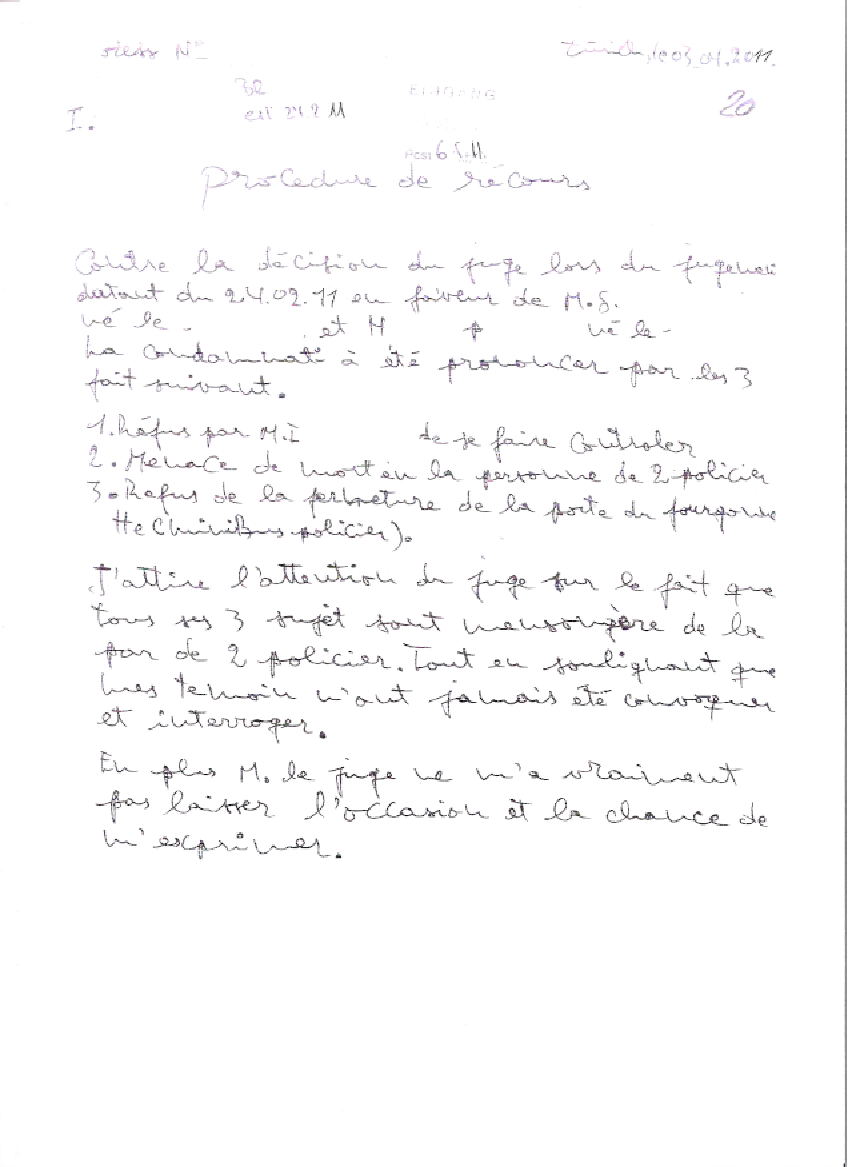 N° Zürich, le 03.04.2011.
EINGANG
20
I.
Procedure de récours
Contre la décision du juge lors du jugement
datant du 24.02.11 en faveur de M.S.
né le. et M né le-
La condamnati à été prononcer par les 3
fait suivant.
1. Réfus par M.I de se faire controler
2. Menace de mort en la personne de 2 policier
3. Refus de la fermeture de la porte du fourgonne
tte (minibus policier).
J'attire l'attention du juge sur le fait que
tous ses 3 sujèt sont mensongère de la
par de 2 policier. Tout en soulignant que
mes temoin n'ont jamais été convoquer
et interroger.
En plus M. le juge ne m'a vraiment
pas laisser l'occasion et la chance de
m'exprimer.